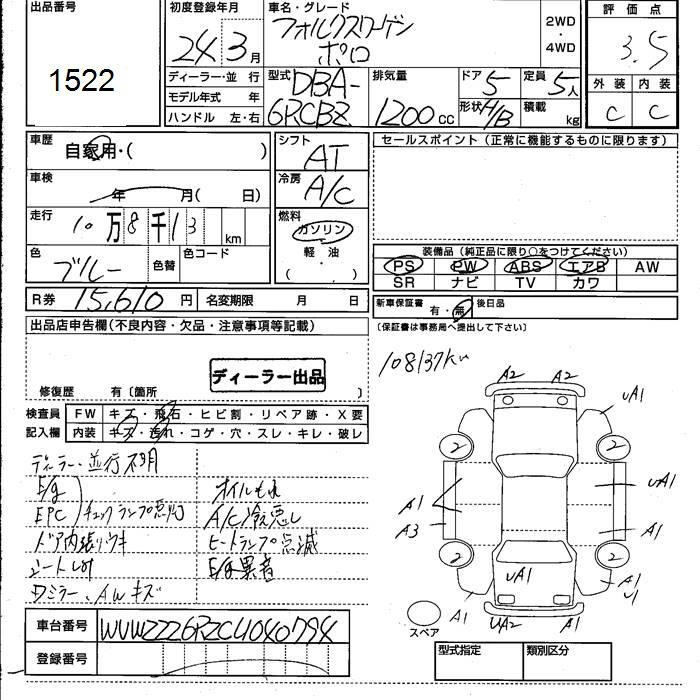 出品番号
1522
初度登録年月
24年3月
車名・グレード
フォルクスワーゲン
ポロ
2WD
4WD
評価点
3.5
ディーラー・並行
モデル年式 年
ハンドル 左・右
型式
DBA-
6RCBZ
排気量
1200cc
ドア
5
定員
5人
形状
H/B
積載
kg
外装
内装
C
C
車歴
自家用・( )
シフト
AT
セールスポイント(正常に機能するものに限ります)
車検
年 月( 日)
冷房
A/C
走行
10万8千13 km
燃料
ガソリン
軽油
( ・ )
色
ブルー
色替
色コード
装備品(純正品に限り○をつけてください)
PS
PW
ABS
エアB
AW
SR
ナビ
TV
カワ
R券
15,610円
名変期限 月 日
新車保証書
有・無
後日品
(保証書は事務局へ提出して下さい)
出品店申告欄(不良内容・欠品・注意事項等記載)
ディーラー出品
修復歴 有〔箇所 〕
108137km
検査員
記入欄
FW
キズ・飛石・ヒビ割・リペア跡・X要
内装
キズ・汚れ・コゲ・穴・スレ・キレ・破レ
ディーラー・並行不明
E/g
EPC
チェックランプ点灯
ドア内張りウキ
シートしわ
Dミラー、AWキズ
オイルもれ
A/C冷悪し
ヒートランプ点滅
E/g異音
車台番号
WVWZZZ6RZCU040794
登録番号
A2
A2
UA1
2
2
A1
A3
UA1
A1
2
2
UA1
A1
U1
A1
UA2
A1
スペア
型式指定
類別区分